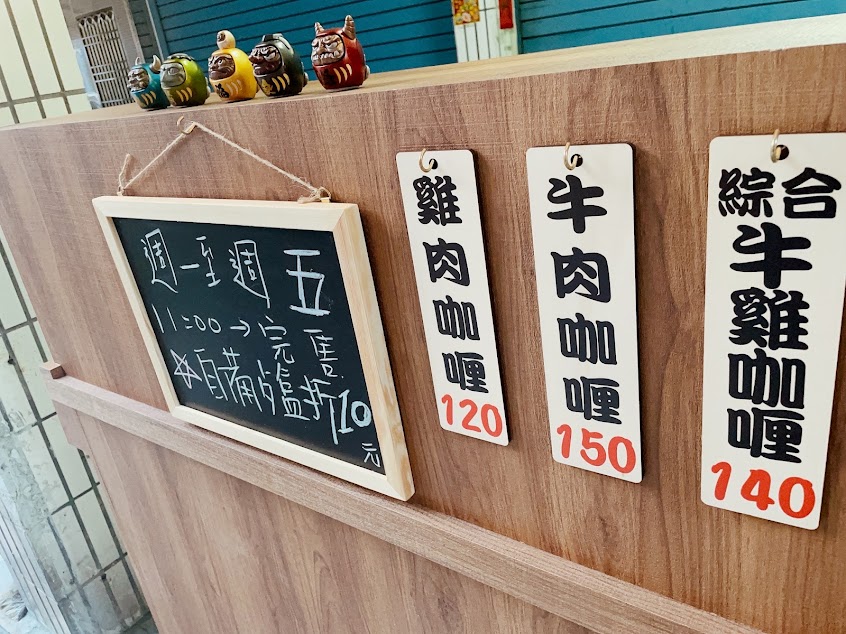 週一至週五
11:00→完售
※自備餐盒折10元
雞肉咖喱
120
牛肉咖喱
150
綜合
牛雞咖喱
140